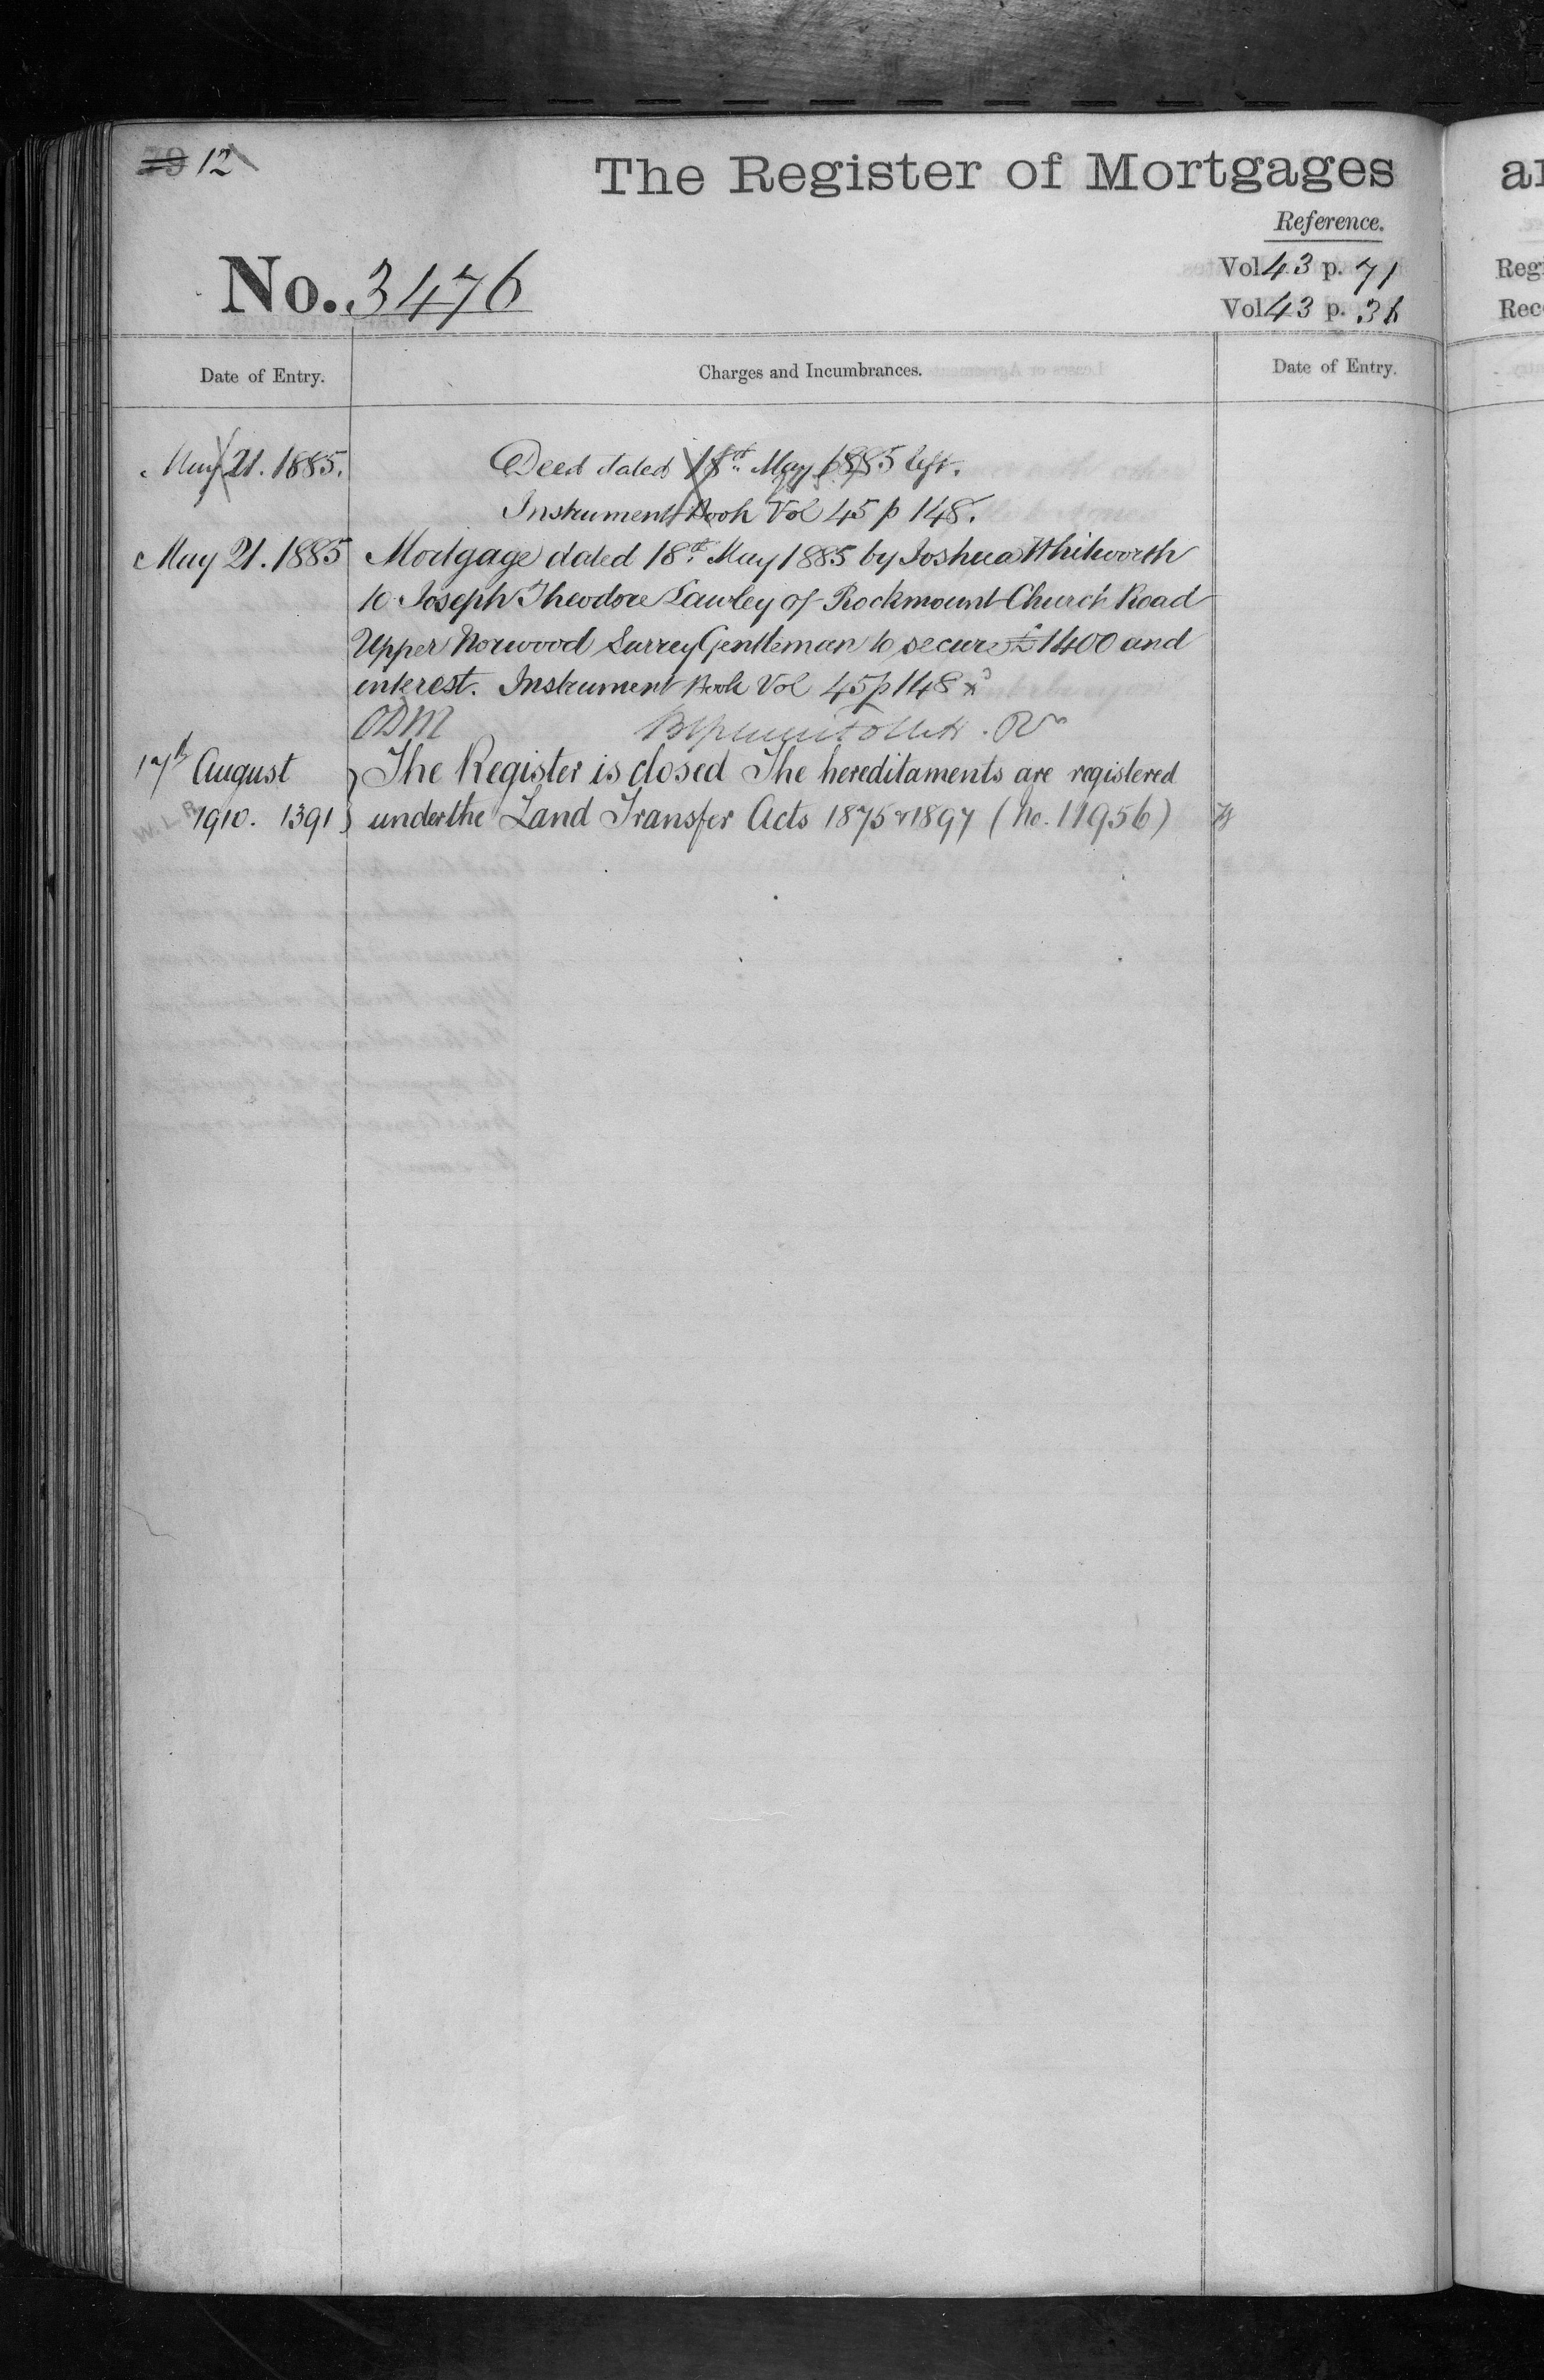 12
The Register of Mortgages
Reference.
No. 3476
Vol. 43 p. 71
Vol. 43 p. 36
Date of Entry.
Charges and Incumbrances.
Date of Entry.
May 21. 1885.
Deed dated 18th May 1885 left.
Instrument Book Vol 45 p 148.
May 21. 1885
Mortgage dated 18th May 1885 by Joshua Whitworth
to Joseph Theodore Lawley of Rockmount Church Road
Upper Norwood Surrey Gentleman to secure £1400 and
interest. Instrument Book Vol 45 p 148
ODM
17th August
1910. 1391
The Register is closed The hereditaments are registered
under the Land Transfer Acts 1875 & 1897 (No. 11956)
Regi
Rec